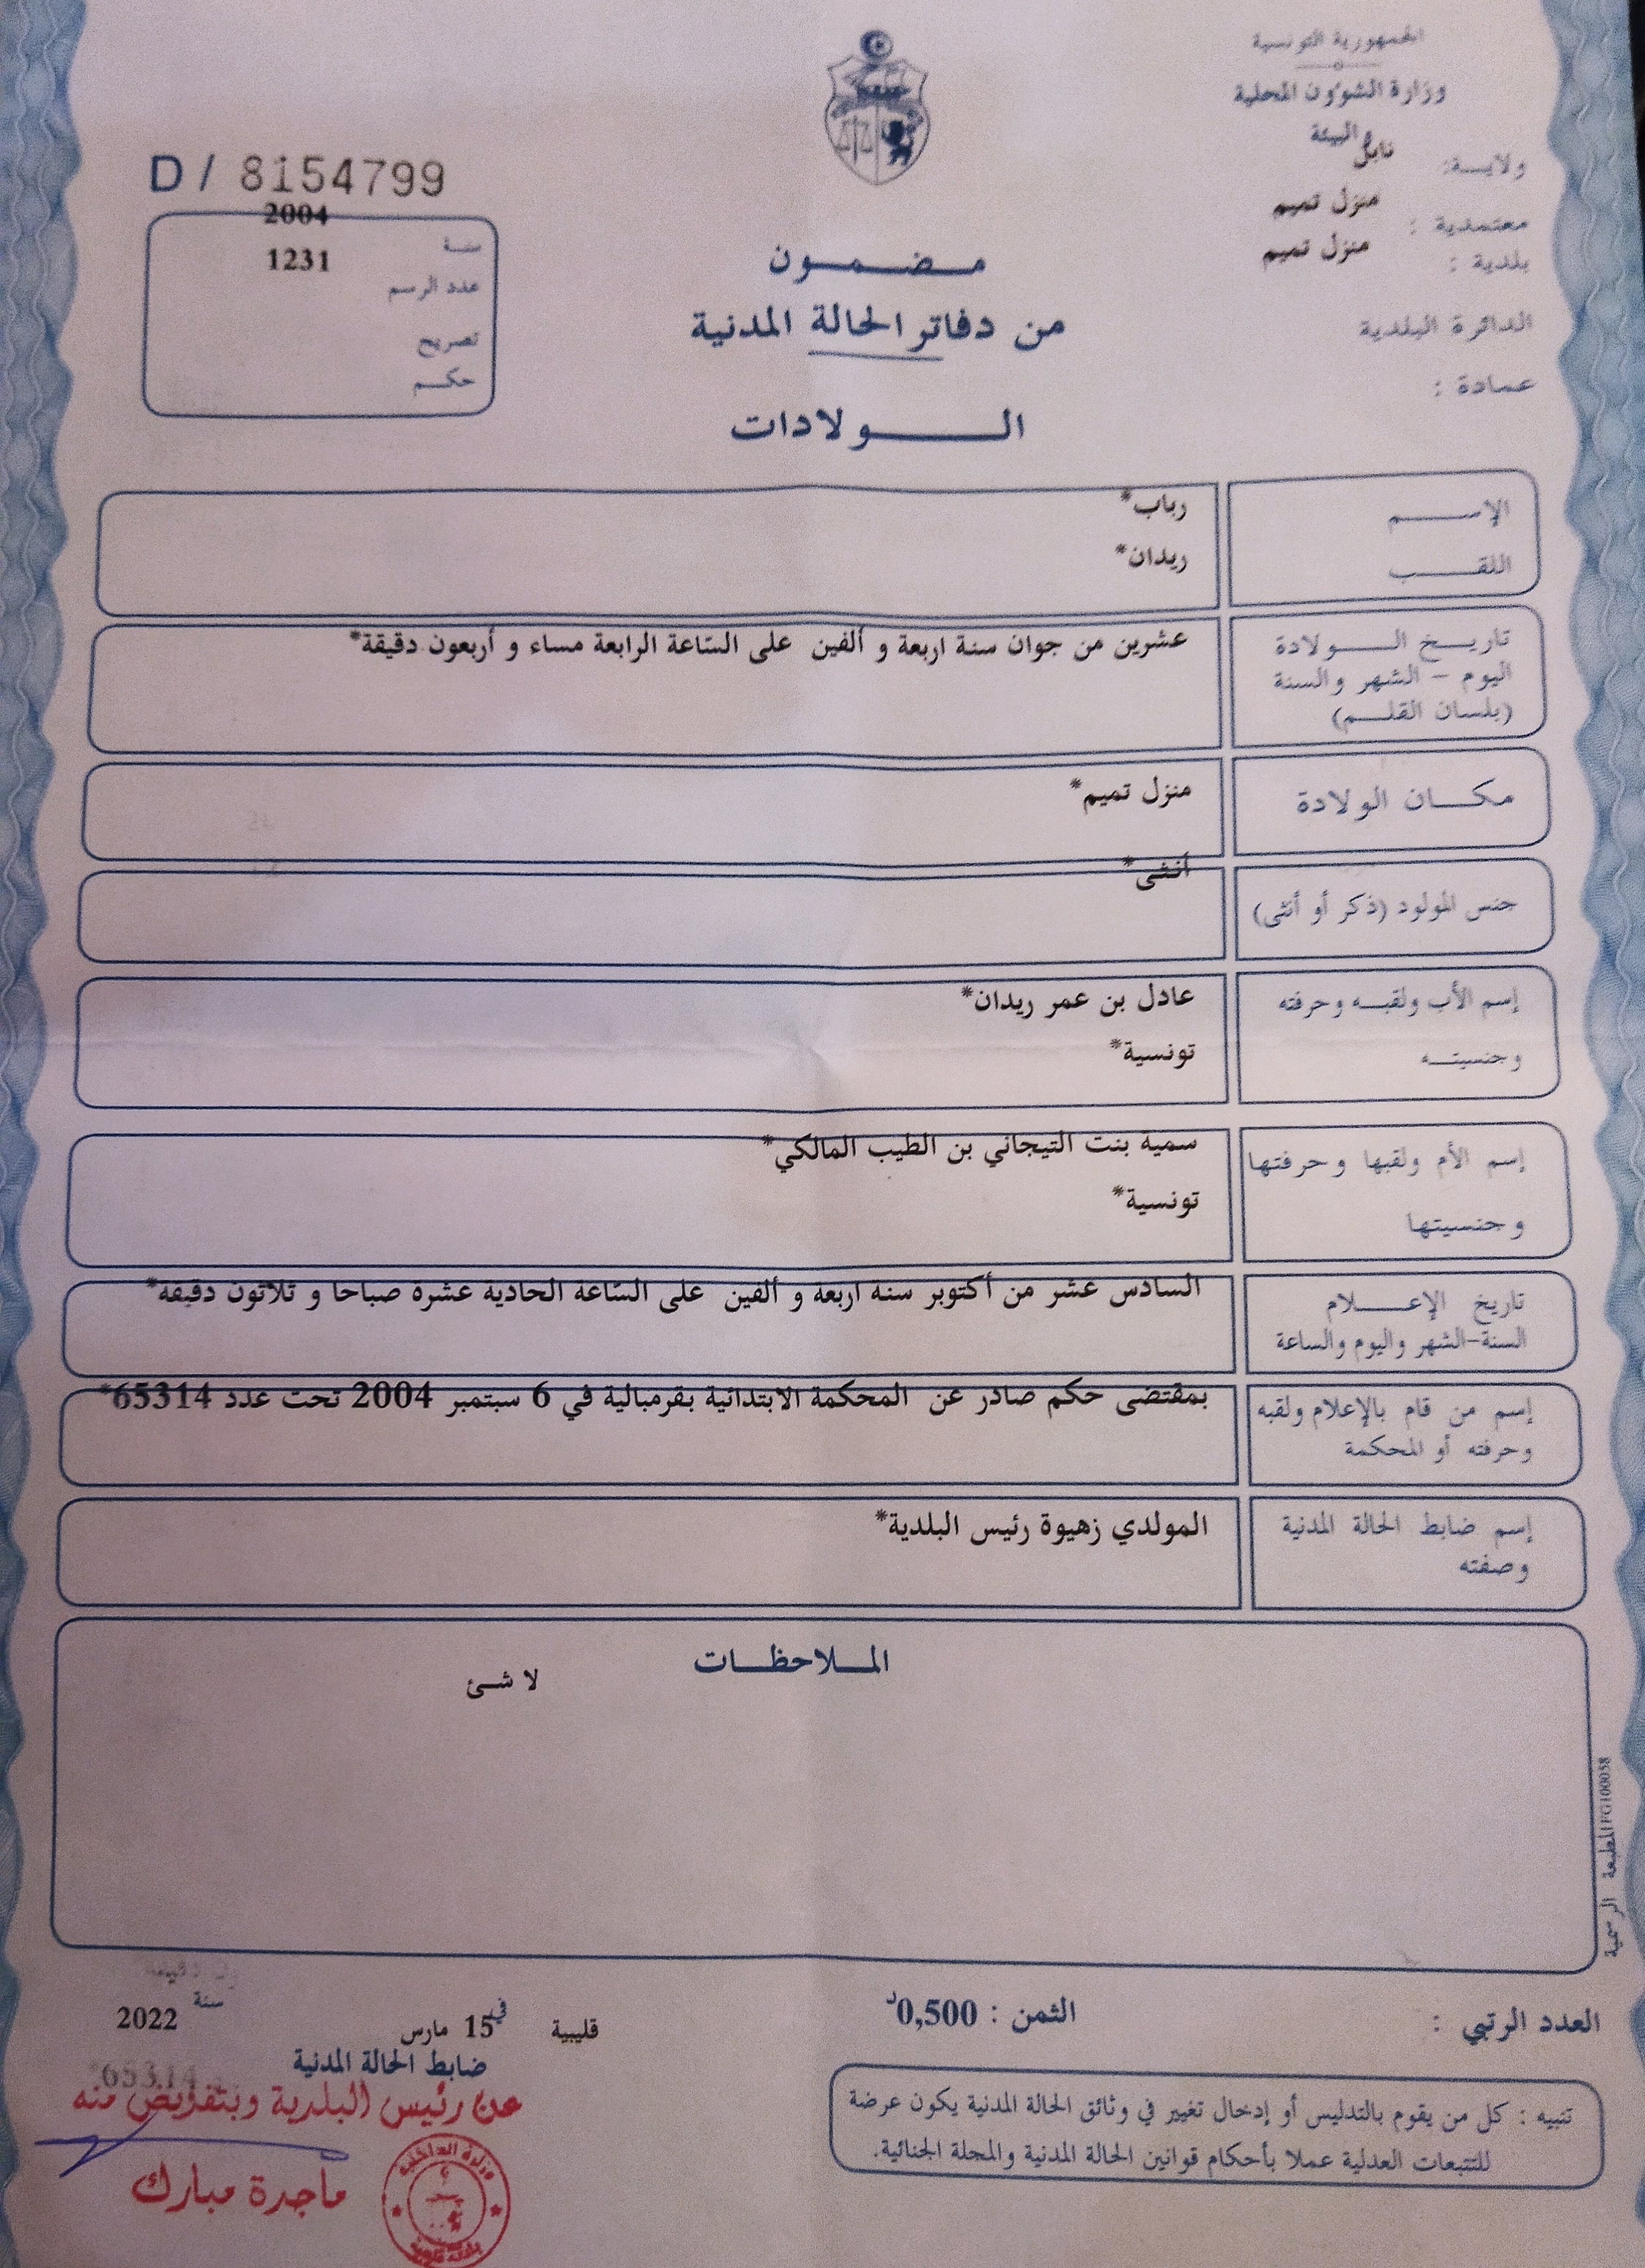 الجمهورية التونسية
وزارة الشؤون المحلية
والبيئة
ولاية: نابل
معتمدية : منزل تميم
بلدية : منزل تميم
الدائرة البلدية
عمادة :
D / 8154799
سنة 2004
عدد الرسم 1231
تصريح
حكم
مضمون
من دفاتر الحالة المدنية
الولادات
الإسم رباب*
اللقب ريدان*
تاريخ الولادة عشرين من جوان سنة اربعة و ألفين على الساعة الرابعة مساء و أربعون دقيقة*
اليوم - الشهر والسنة
(بلسان القلم)
مكان الولادة منزل تميم*
جنس المولود (ذكر أو أنثى) أنثى*
إسم الأب ولقبه وحرفته عادل بن عمر ريدان*
وجنسيته تونسية*
إسم الأم ولقبها وحرفتها سمية بنت التيجاني بن الطيب المالكي*
وجنسيتها تونسية*
تاريخ الإعلام السادس عشر من أكتوبر سنة اربعة و ألفين على الساعة الحادية عشرة صباحا و ثلاثون دقيقة*
السنة-الشهر واليوم والساعة
إسم من قام بالإعلام ولقبه بمقتضى حكم صادر عن المحكمة الابتدائية بقرمبالية في 6 سبتمبر 2004 تحت عدد 65314*
وحرفته أو المحكمة
إسم ضابط الحالة المدنية المولدي زهيوة رئيس البلدية*
وصفته
الملاحظات
لا شئ
المطبعة الرسمية FG100038
العدد الرتبي :
الثمن : 0,500د
قليبية في 15 مارس سنة 2022
ضابط الحالة المدنية
65314*
عن رئيس البلدية وبتفويض منه
ماجدة مبارك
وزارة الداخلية
تنبيه : كل من يقوم بالتدليس أو إدخال تغيير في وثائق الحالة المدنية يكون عرضة
للتتبعات العدلية عملا بأحكام قوانين الحالة المدنية والمجلة الجنائية.